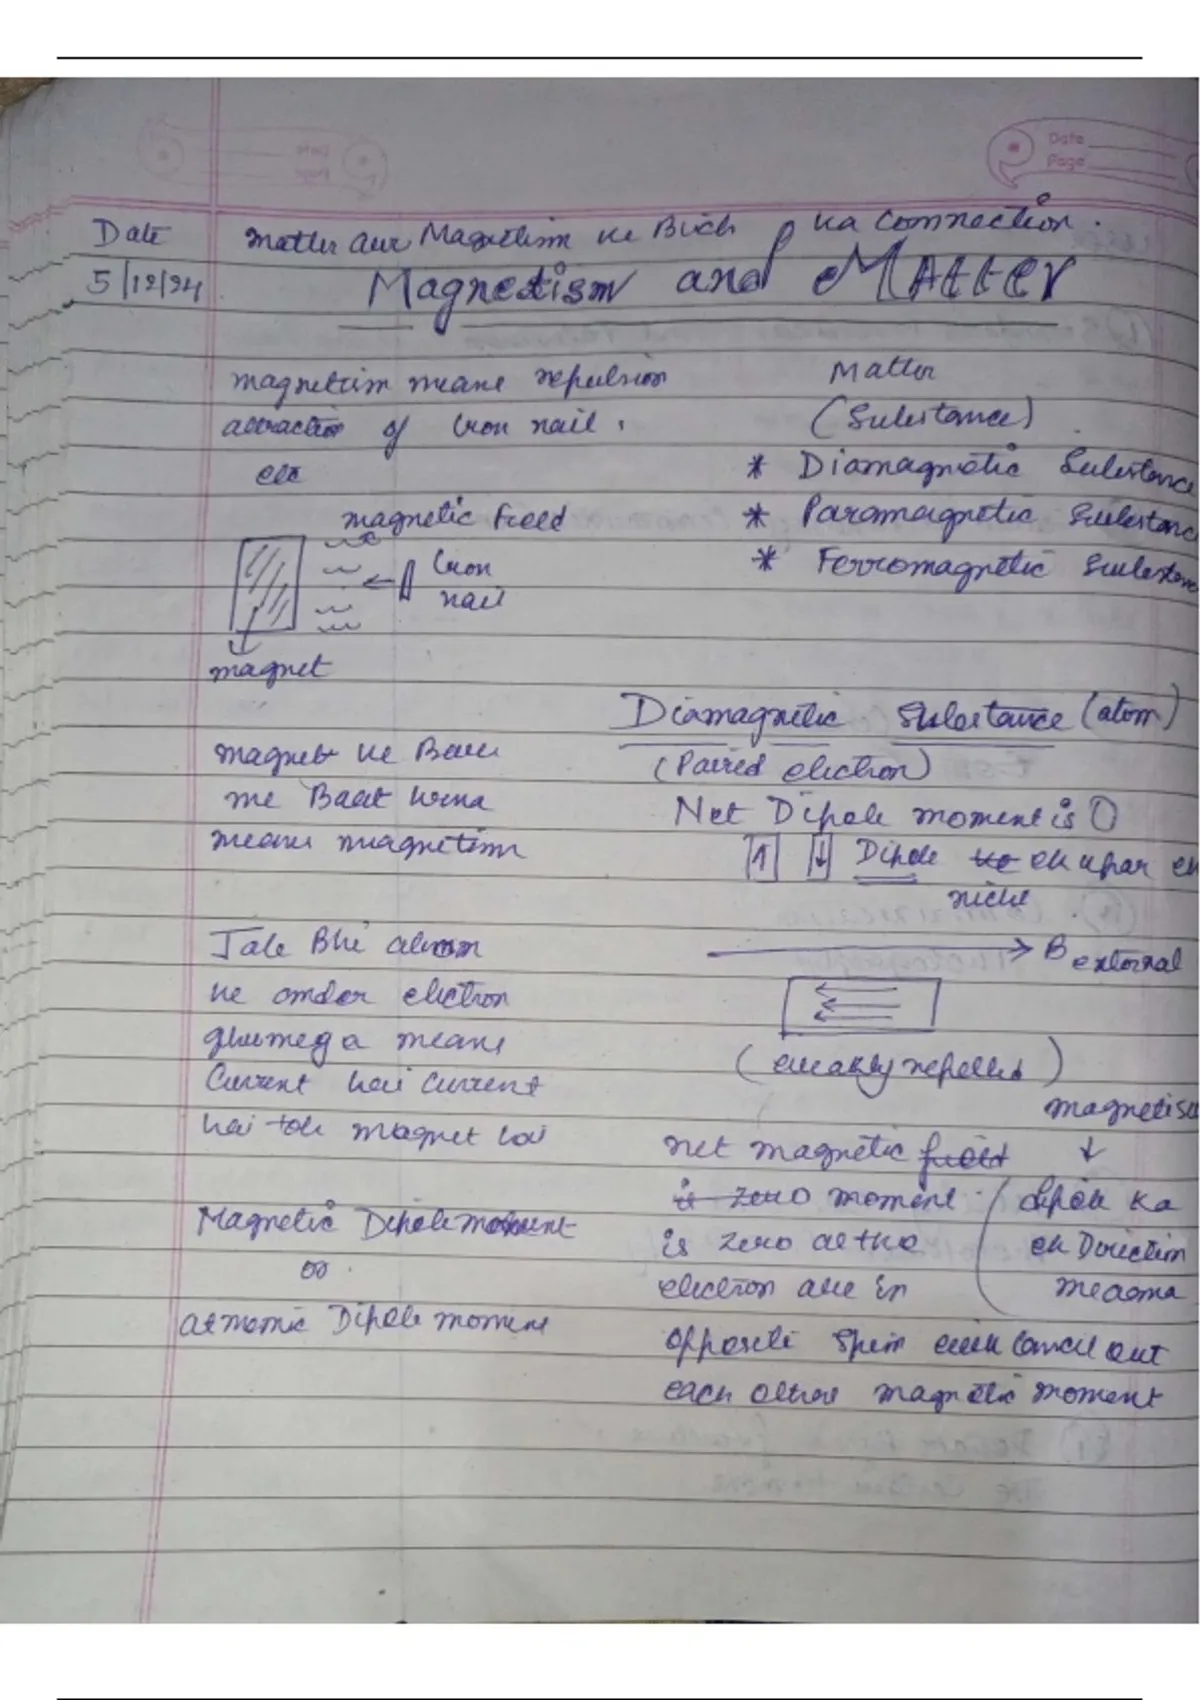 Date
Page
Date
5/12/24
matter aur Magnetism ke Bich ka Connection.
Magnetism and Matter
magnetism means repulsion
attraction of Iron nail.
etc
magnetic Feed
Iron
nail
magnet
magnet ke Baare
me Baat krna
means magnetism
Jab Bhi
ke andar electron
ghumega means
Current hai Current
hai toh magnet hai
Magnetic Dipole moment
or
Dipole moment
Matter
(Substance)
* Diamagnetic Substance
* Paramagnetic Substanc
* Ferromagnetic Substan
Diamagnetic Substance (atom)
(Paired electron)
Net Dipole moment is 0
Dipole ek upar ek
niche
B external
(weakly repelled)
net magnetic field
is zero moment
is zero as the
electron are in
opposite spin cancel out
each other magnetic moment
↓
Dipole ka
ek Direction
me aana